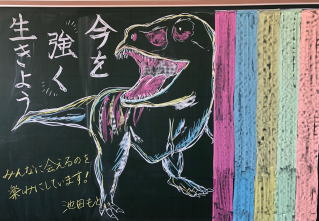 今を
強く
生きよう
みんなに会えるのを
楽みにしています!
池田も